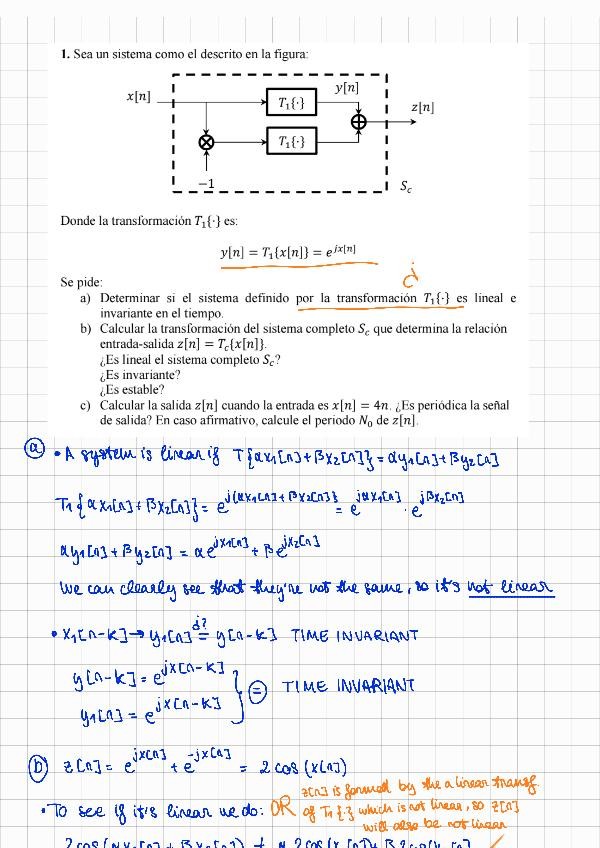 1. Sea un sistema como el descrito en la figura:
x[n]
T₁{·}
y[n]
z[n]
T₁{·}
−1
S_c
Donde la transformación T₁{·} es:
y[n] = T₁{x[n]} = e^{jx[n]}
Se pide:
a) Determinar si el sistema definido por la transformación T₁{·} es lineal e
invariante en el tiempo.
b) Calcular la transformación del sistema completo S_c que determina la relación
entrada-salida z[n] = T_c{x[n]}.
¿Es lineal el sistema completo S_c?
¿Es invariante?
¿Es estable?
c) Calcular la salida z[n] cuando la entrada es x[n] = 4n. ¿Es periódica la señal
de salida? En caso afirmativo, calcule el periodo N₀ de z[n].
ⓐ • A system is linear if T{αx₁[n]+βx₂[n]} = αy₁[n]+βy₂[n]
T₁{αx₁[n]+βx₂[n]} = e^{j(αx₁[n]+βx₂[n])} = e^{jαx₁[n]} · e^{jβx₂[n]}
αy₁[n]+βy₂[n] = αe^{jx₁[n]} + βe^{jx₂[n]}
We can clearly see that they're not the same, so it's not linear
• x₁[n-k] → y₁[n] =¿? y[n-k] TIME INVARIANT
y[n-k] = e^{jx[n-k]}
y₁[n] = e^{jx[n-k]}
} ⊜ TIME INVARIANT
ⓑ z[n] = e^{jx[n]} + e^{-jx[n]} = 2cos(x[n])
• To see if it's linear we do: OR z[n] is formed by the a linear transf.
of T₁{·} which is not linear, so z[n]
will also be not linear